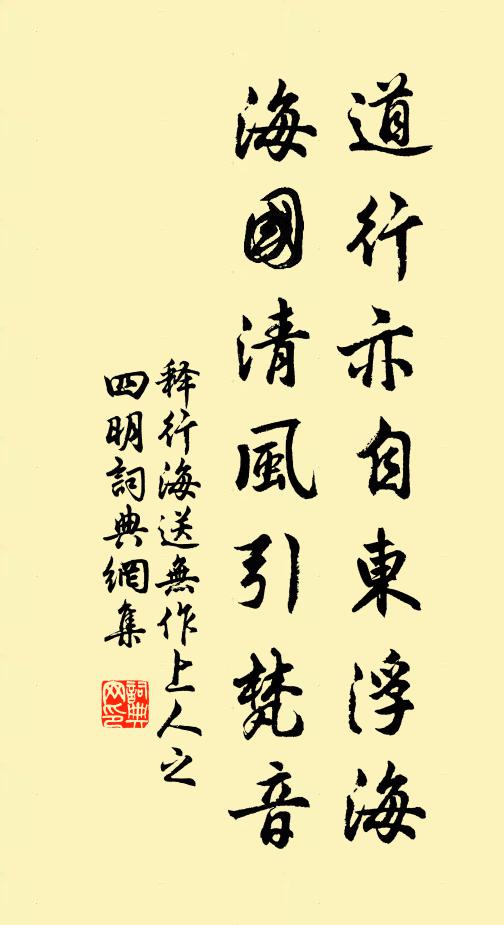 道行亦自東浮海
海國清風引梵音
释行海送無作上人之
四明詞典網集
詞典
网印